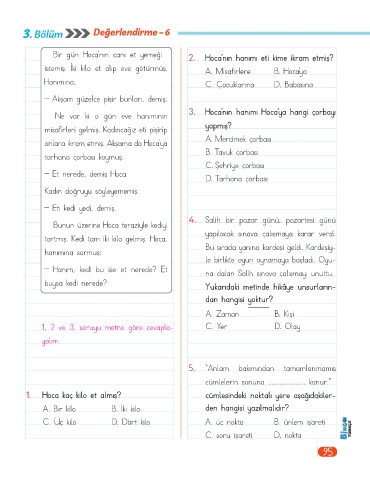 3. Bölüm Değerlendirme - 6
Bir gün Hoca'nın canı et yemeği
istemiş. İki kilo et alıp eve götürmüş.
Hanımına,
– Akşam güzelce pişir bunları, demiş.
Ne var ki o gün eve hanımının
misafirleri gelmiş. Kadıncağız eti pişirip
onlara ikram etmiş. Akşama da Hoca'ya
tarhana çorbası koymuş.
– Et nerede, demiş Hoca.
Kadın doğruyu söyleyememiş.
– Eti kedi yedi, demiş.
Bunun üzerine Hoca teraziyle kediyi
tartmış. Kedi tam iki kilo gelmiş. Hoca,
hanımına sormuş:
– Hanım, kedi bu ise et nerede? Et
buysa kedi nerede?
1, 2 ve 3. soruyu metne göre cevapla-
yalım.
1. Hoca kaç kilo et almış?
A. Bir kilo B. İki kilo
C. Üç kilo D. Dört kilo
2. Hoca'nın hanımı eti kime ikram etmiş?
A. Misafirlere B. Hoca'ya
C. Çocuklarına D. Babasına
3. Hoca'nın hanımı Hoca'ya hangi çorbayı
yapmış?
A. Mercimek çorbası
B. Tavuk çorbası
C. Şehriye çorbası
D. Tarhana çorbası
4. Salih bir pazar günü, pazartesi günü
yapılacak sınava çalışmaya karar verdi.
Bu sırada yanına kardeşi geldi. Kardeşiy-
le birlikte oyun oynamaya başladı. Oyu-
na dalan Salih sınava çalışmayı unuttu.
Yukarıdaki metinde hikâye unsurların-
dan hangisi yoktur?
A. Zaman B. Kişi
C. Yer D. Olay
5. "Anlam bakımından tamamlanmamış
cümlelerin sonuna .................... konur."
cümlesindeki noktalı yere aşağıdakiler-
den hangisi yazılmalıdır?
A. üç nokta B. ünlem işareti
C. soru işareti D. nokta
95